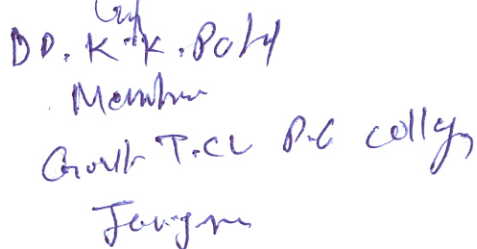 DD. K.K. Patel
Member
Govt. T.CL P.G college
Janjgir